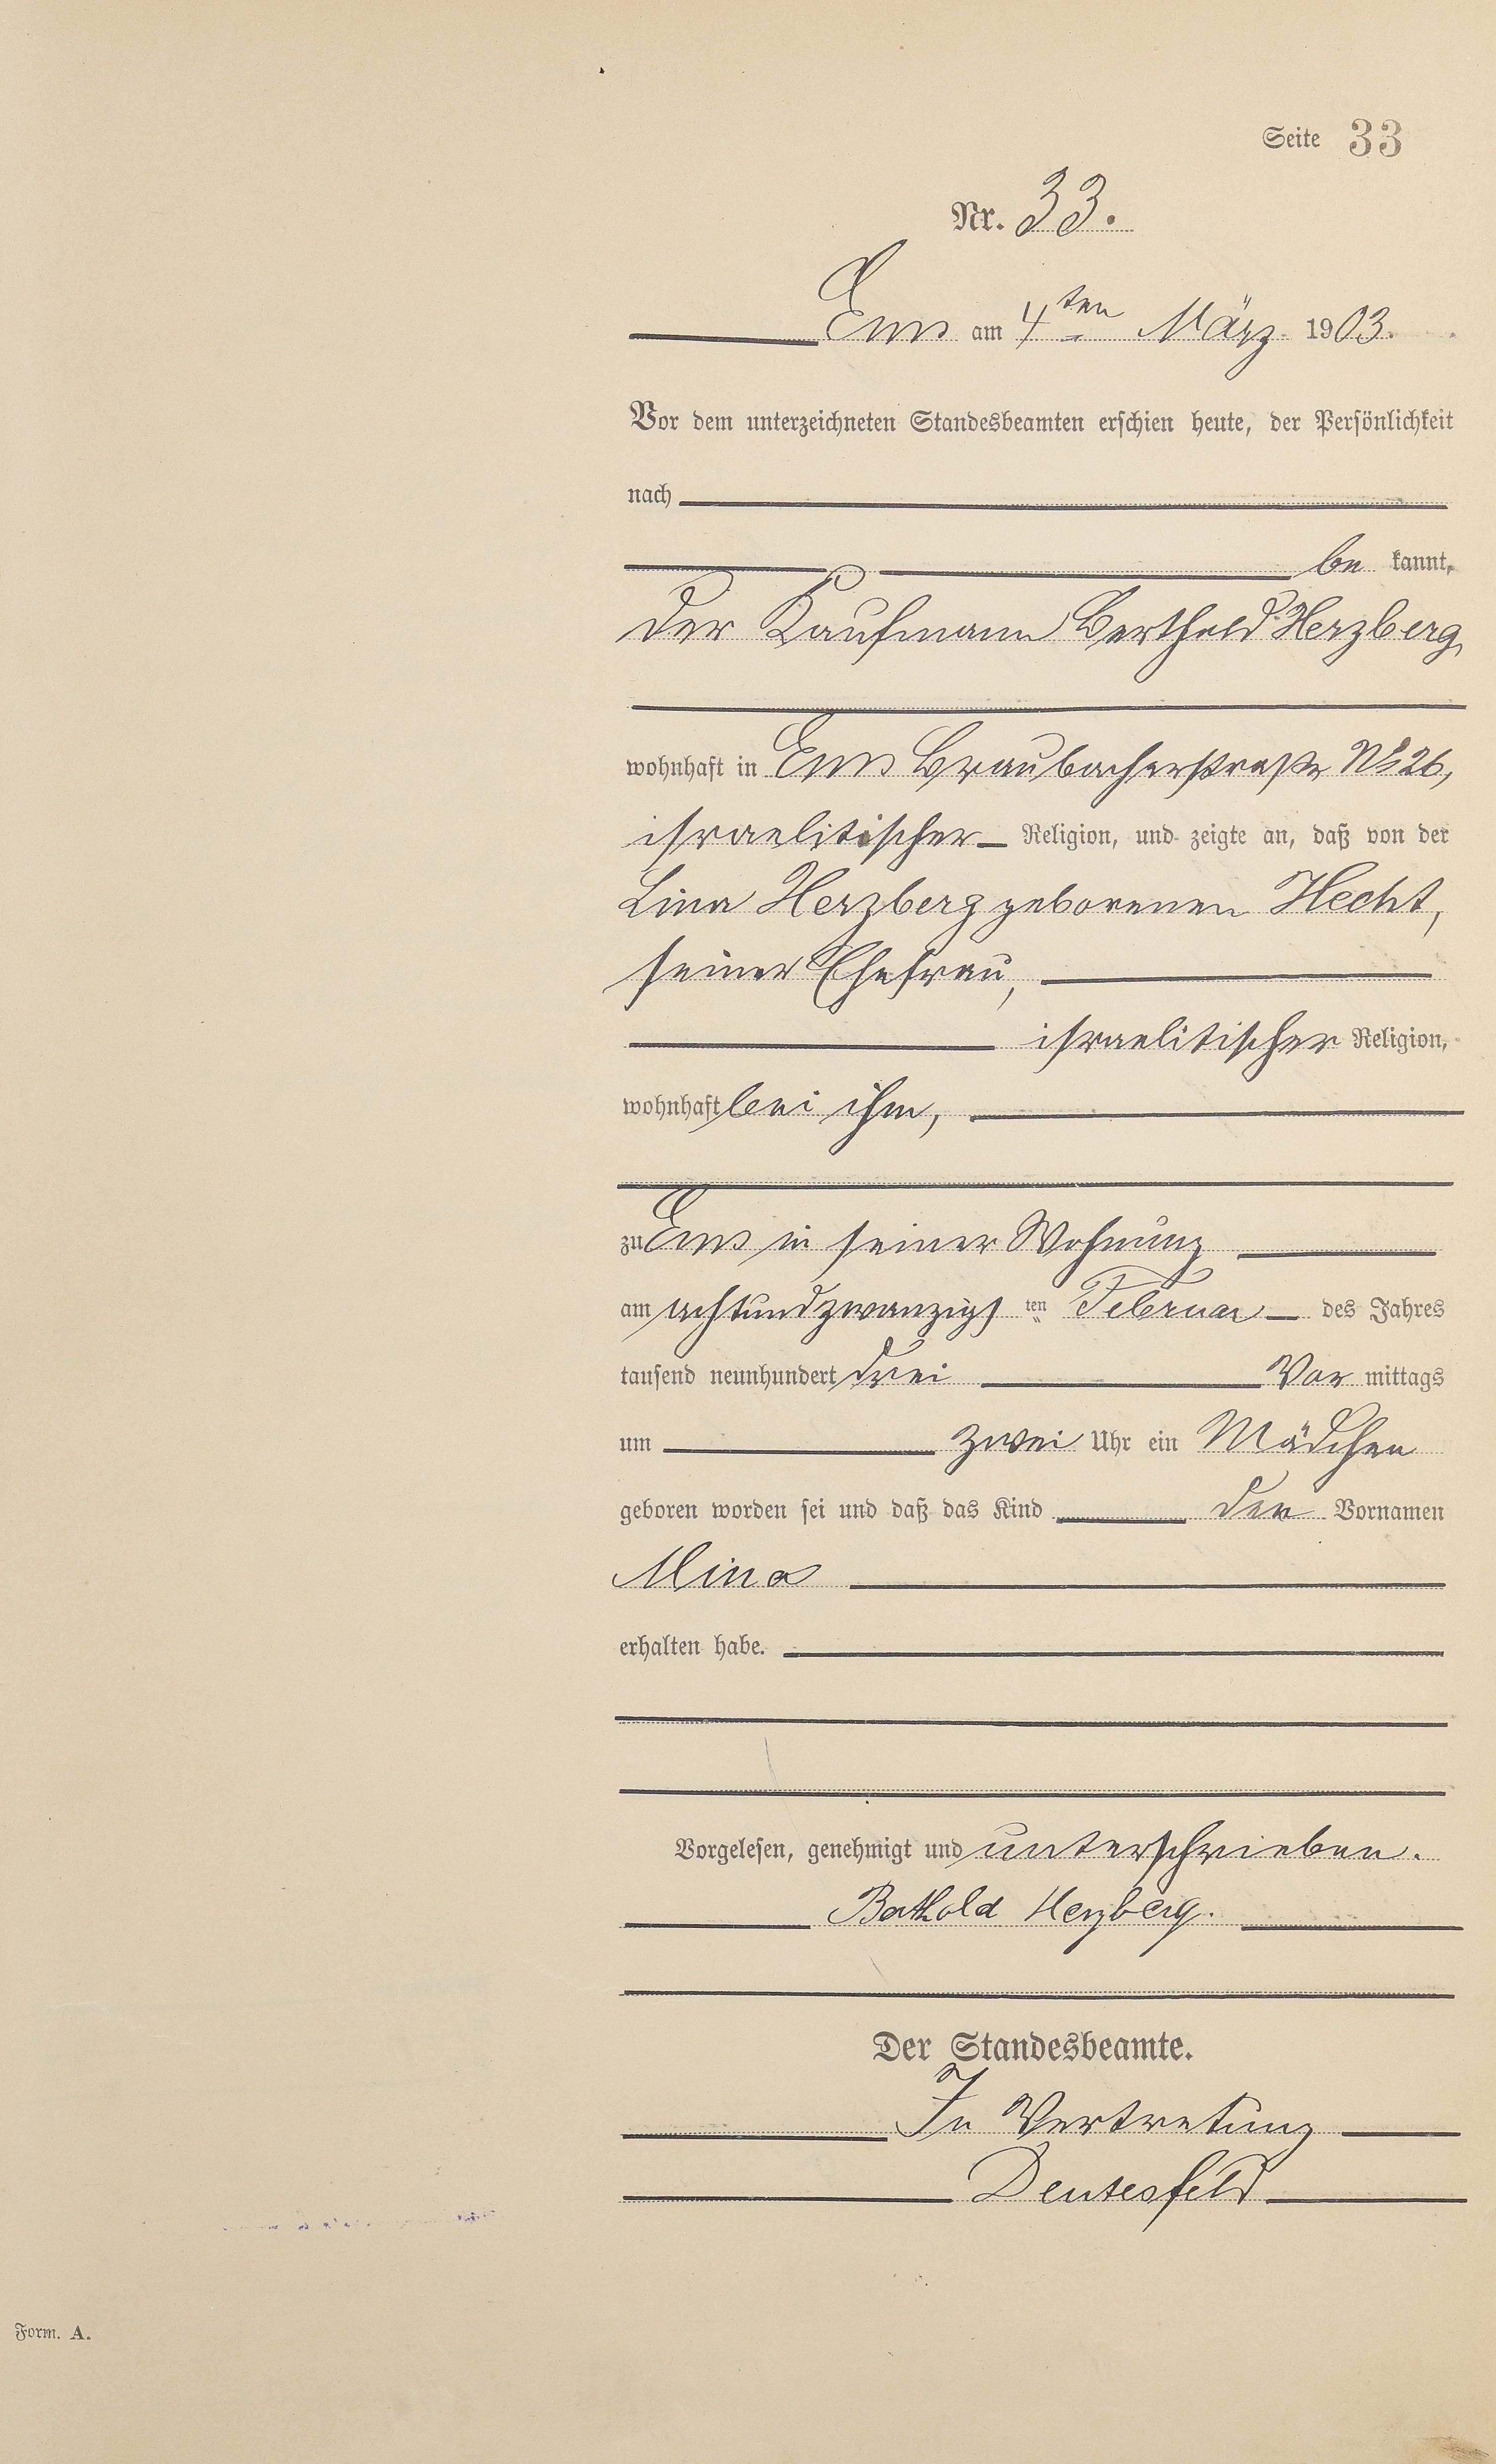 Seite 33
Nr. 33.
Ems am 4ten März 1903.
Vor dem unterzeichneten Standesbeamten erschien heute, der Persönlichkeit
nach
be kannt,
der Kaufmann Berthold Herzberg,
wohnhaft in Ems Braubacherstraße No 26,
israelitischer Religion, und zeigte an, daß von der
Lina Herzberg geborenen Hecht,
seiner Ehefrau,
israelitischer Religion,
wohnhaft bei ihm,
zu Ems in seiner Wohnung
am achtundzwanzigsten Februar des Jahres
tausend neunhundert drei Vor mittags
um zwei Uhr ein Mädchen
geboren worden sei und daß das Kind den Vornamen
Mina
erhalten habe.
Vorgelesen, genehmigt und unterschrieben.
Berthold Herzberg.
Der Standesbeamte.
In Vertretung
Deutesfeld
Form. A.